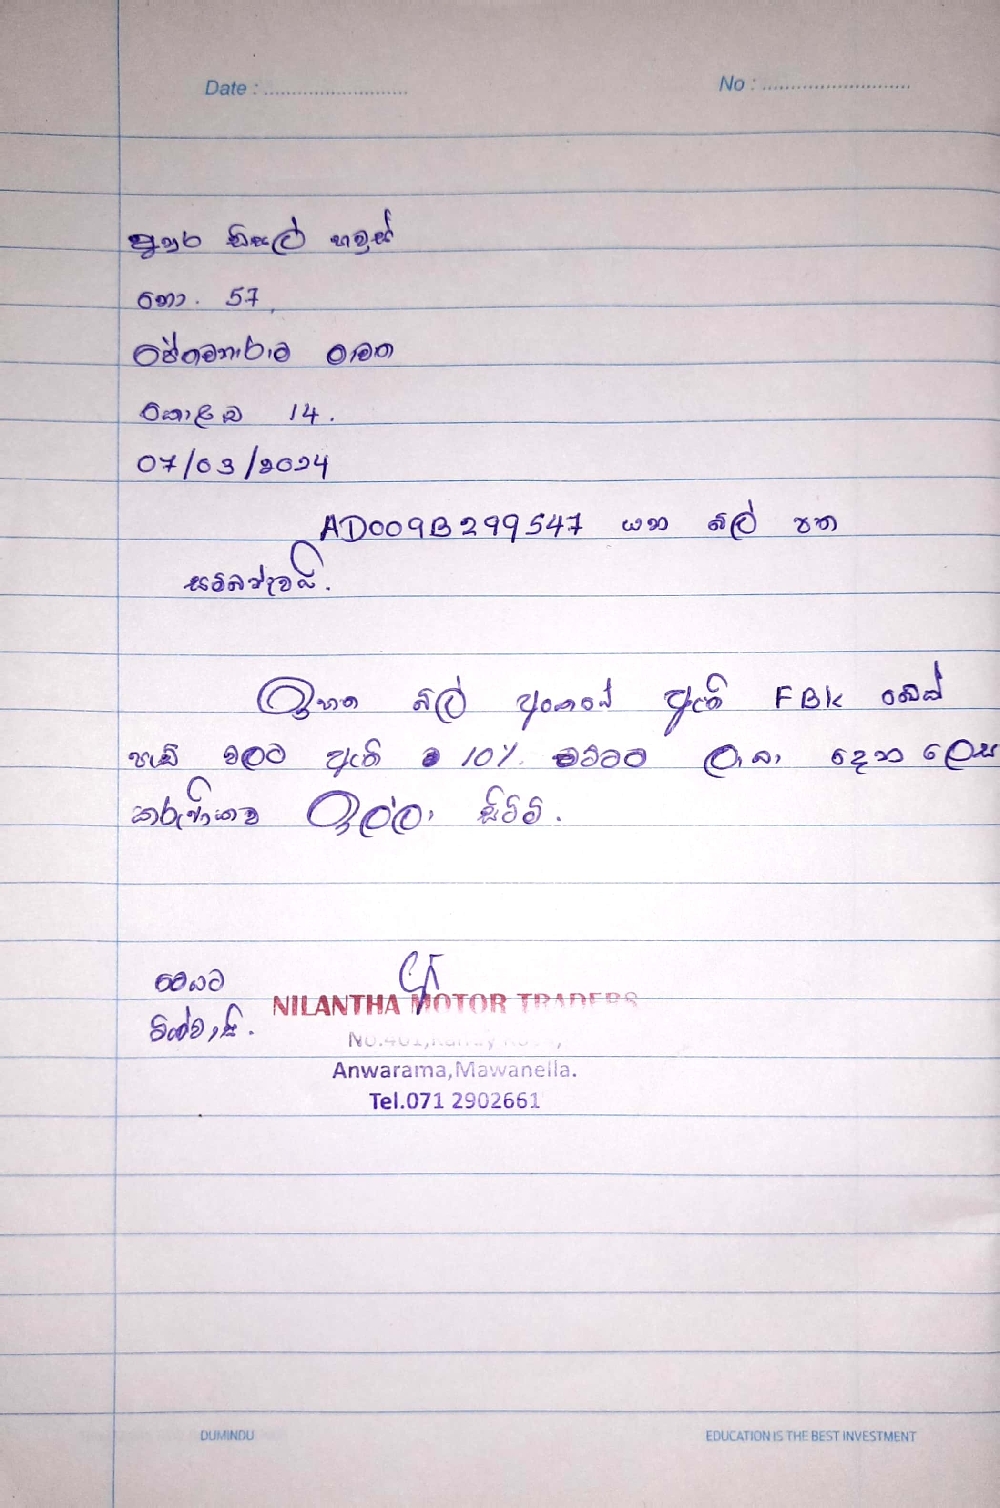 Date : ........................... No : ............................
සුපර් ඩීසල් හවුස්
නො. 57,
පාමත
කොළඹ 14.
07/03/2024
AD009B299547 යන බිල් පත
සම්බන්දවයි.
ඉහත බිල් අංකයේ ඇති FBK බ්‍රේක්
පෑඩ් වලට ඇති 10% වට්ටම ලබා දෙන ලෙස
කරුණිකව ඉල්ලා සිටිමි.
මෙයට
විශ්වාසි.
NILANTHA MOTOR TRADERS
No.461,
Anwarama,Mawanella.
Tel.071 2902661
DUMINDU EDUCATION IS THE BEST INVESTMENT